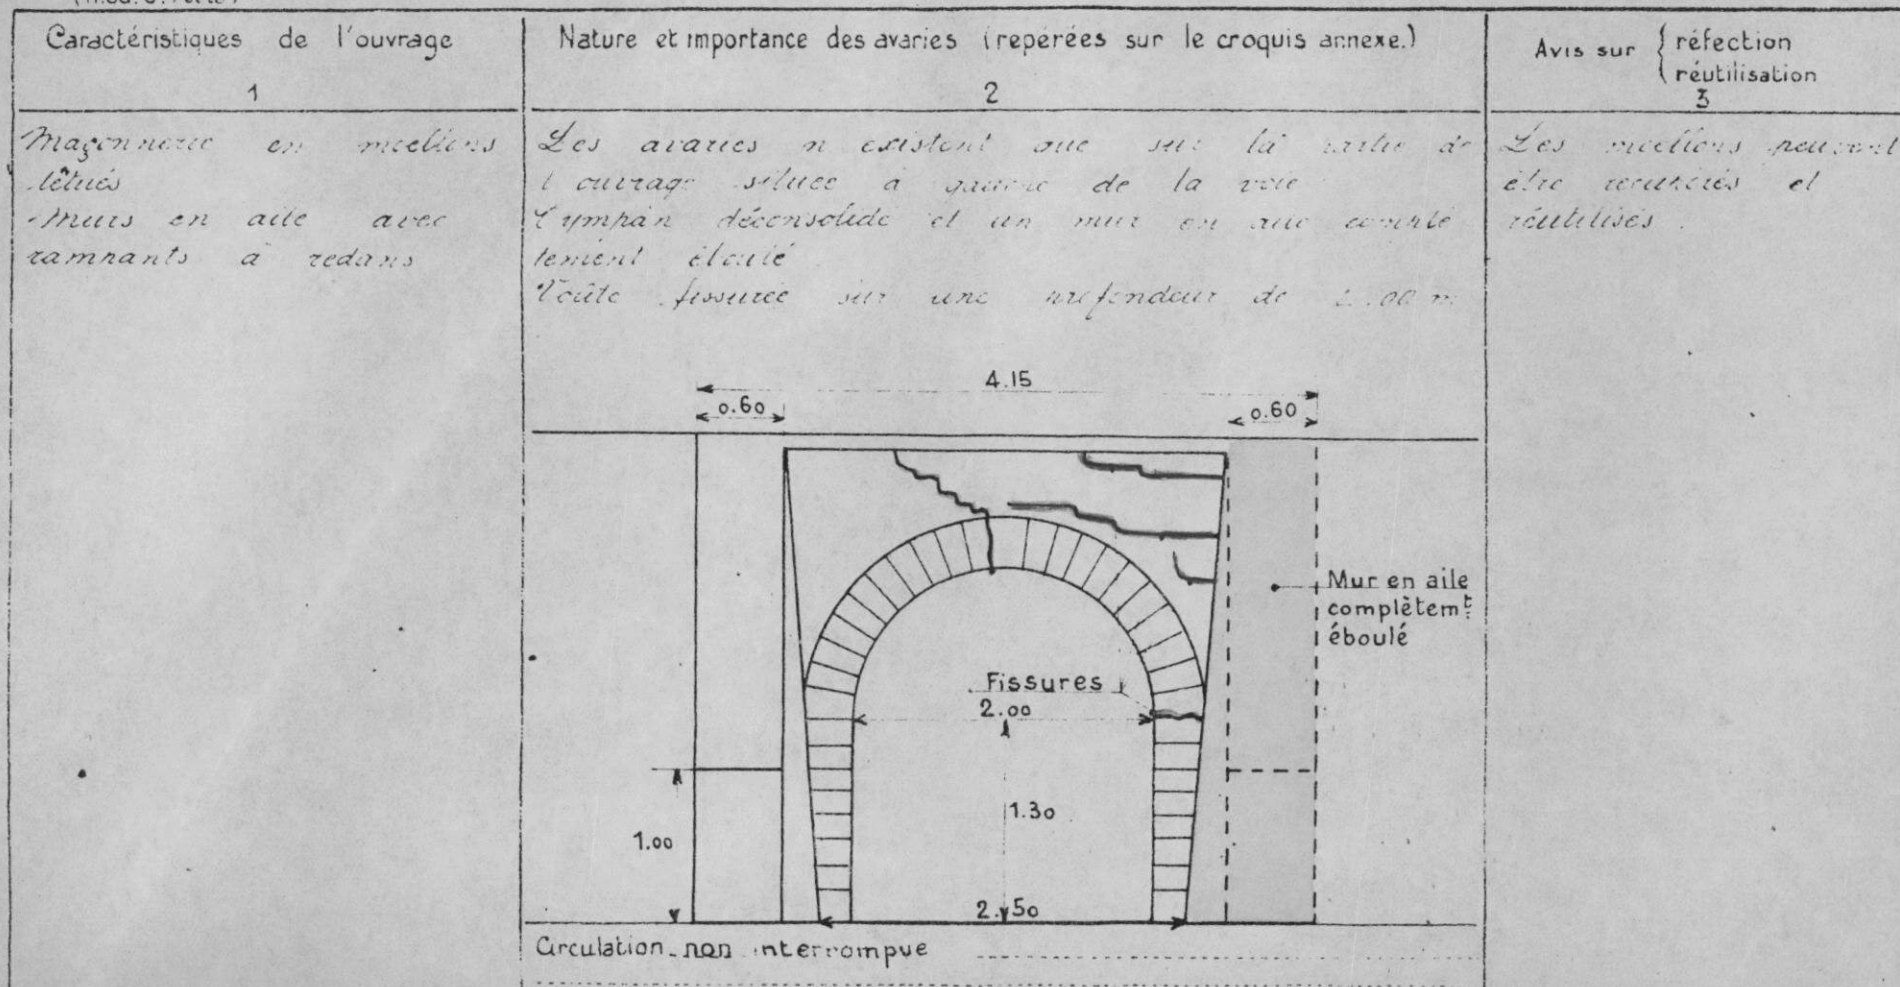 Caractéristiques de l'ouvrage
1
Nature et importance des avaries (repérées sur le croquis annexe.)
2
Avis sur { réfection
réutilisation
3
Maçonnerie en moellons
têtués
Murs en aile avec
rampants à redans
Les avaries n existent que sur la partie de
l ouvrage située à gauche de la voie
Tympan déconsolidé et un mur en aile complè
tement éboulé
Voûte fissurée sur une profondeur de
Les moellons peuvent
être récupérés et
réutilisés.
4.15
0.60
0.60
Mur en aile
complètemt
éboulé
Fissures
2.00
1.30
1.00
2.50
Circulation non interrompue